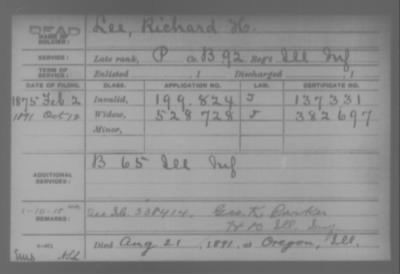 DEAD
NAME OF SOLDIER: Lee, Richard H.
SERVICE: Late rank, P Co. B 92 Reg't Ill Inf
TERM OF SERVICE: Enlisted , 1 Discharged , 1
DATE OF FILING. CLASS. APPLICATION NO. LAW. CERTIFICATE NO.
1875 Feb 2 Invalid, 199.824 137331
1891 Oct 12 Widow, 528728 382697
Minor,
ADDITIONAL SERVICES: B 65 Ill Inf
REMARKS: 338414. Geo. K.
Ill. Inf
Died Aug 21, 1891, at Oregon, Ill.